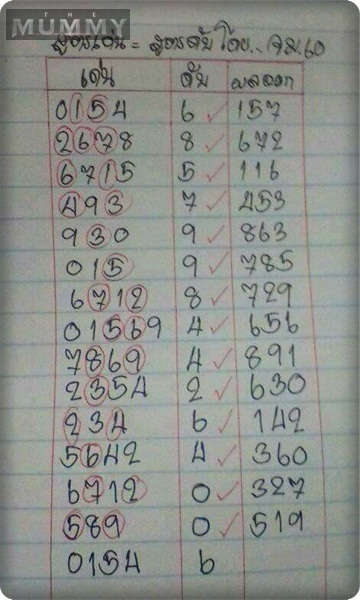 MUMMY
สูตรเด่น = สูตรดับ โดย.. จม.60
เด่น ดับ ผลออก
0154 6 ✓ 157
2678 8 ✓ 672
6715 5 ✓ 116
493 7 ✓ 453
930 9 ✓ 863
015 9 ✓ 785
6712 8 ✓ 729
01569 4 ✓ 656
7869 4 ✓ 891
2354 2 ✓ 630
234 6 ✓ 142
5642 4 ✓ 360
6712 0 ✓ 327
589 0 ✓ 519
0154 6